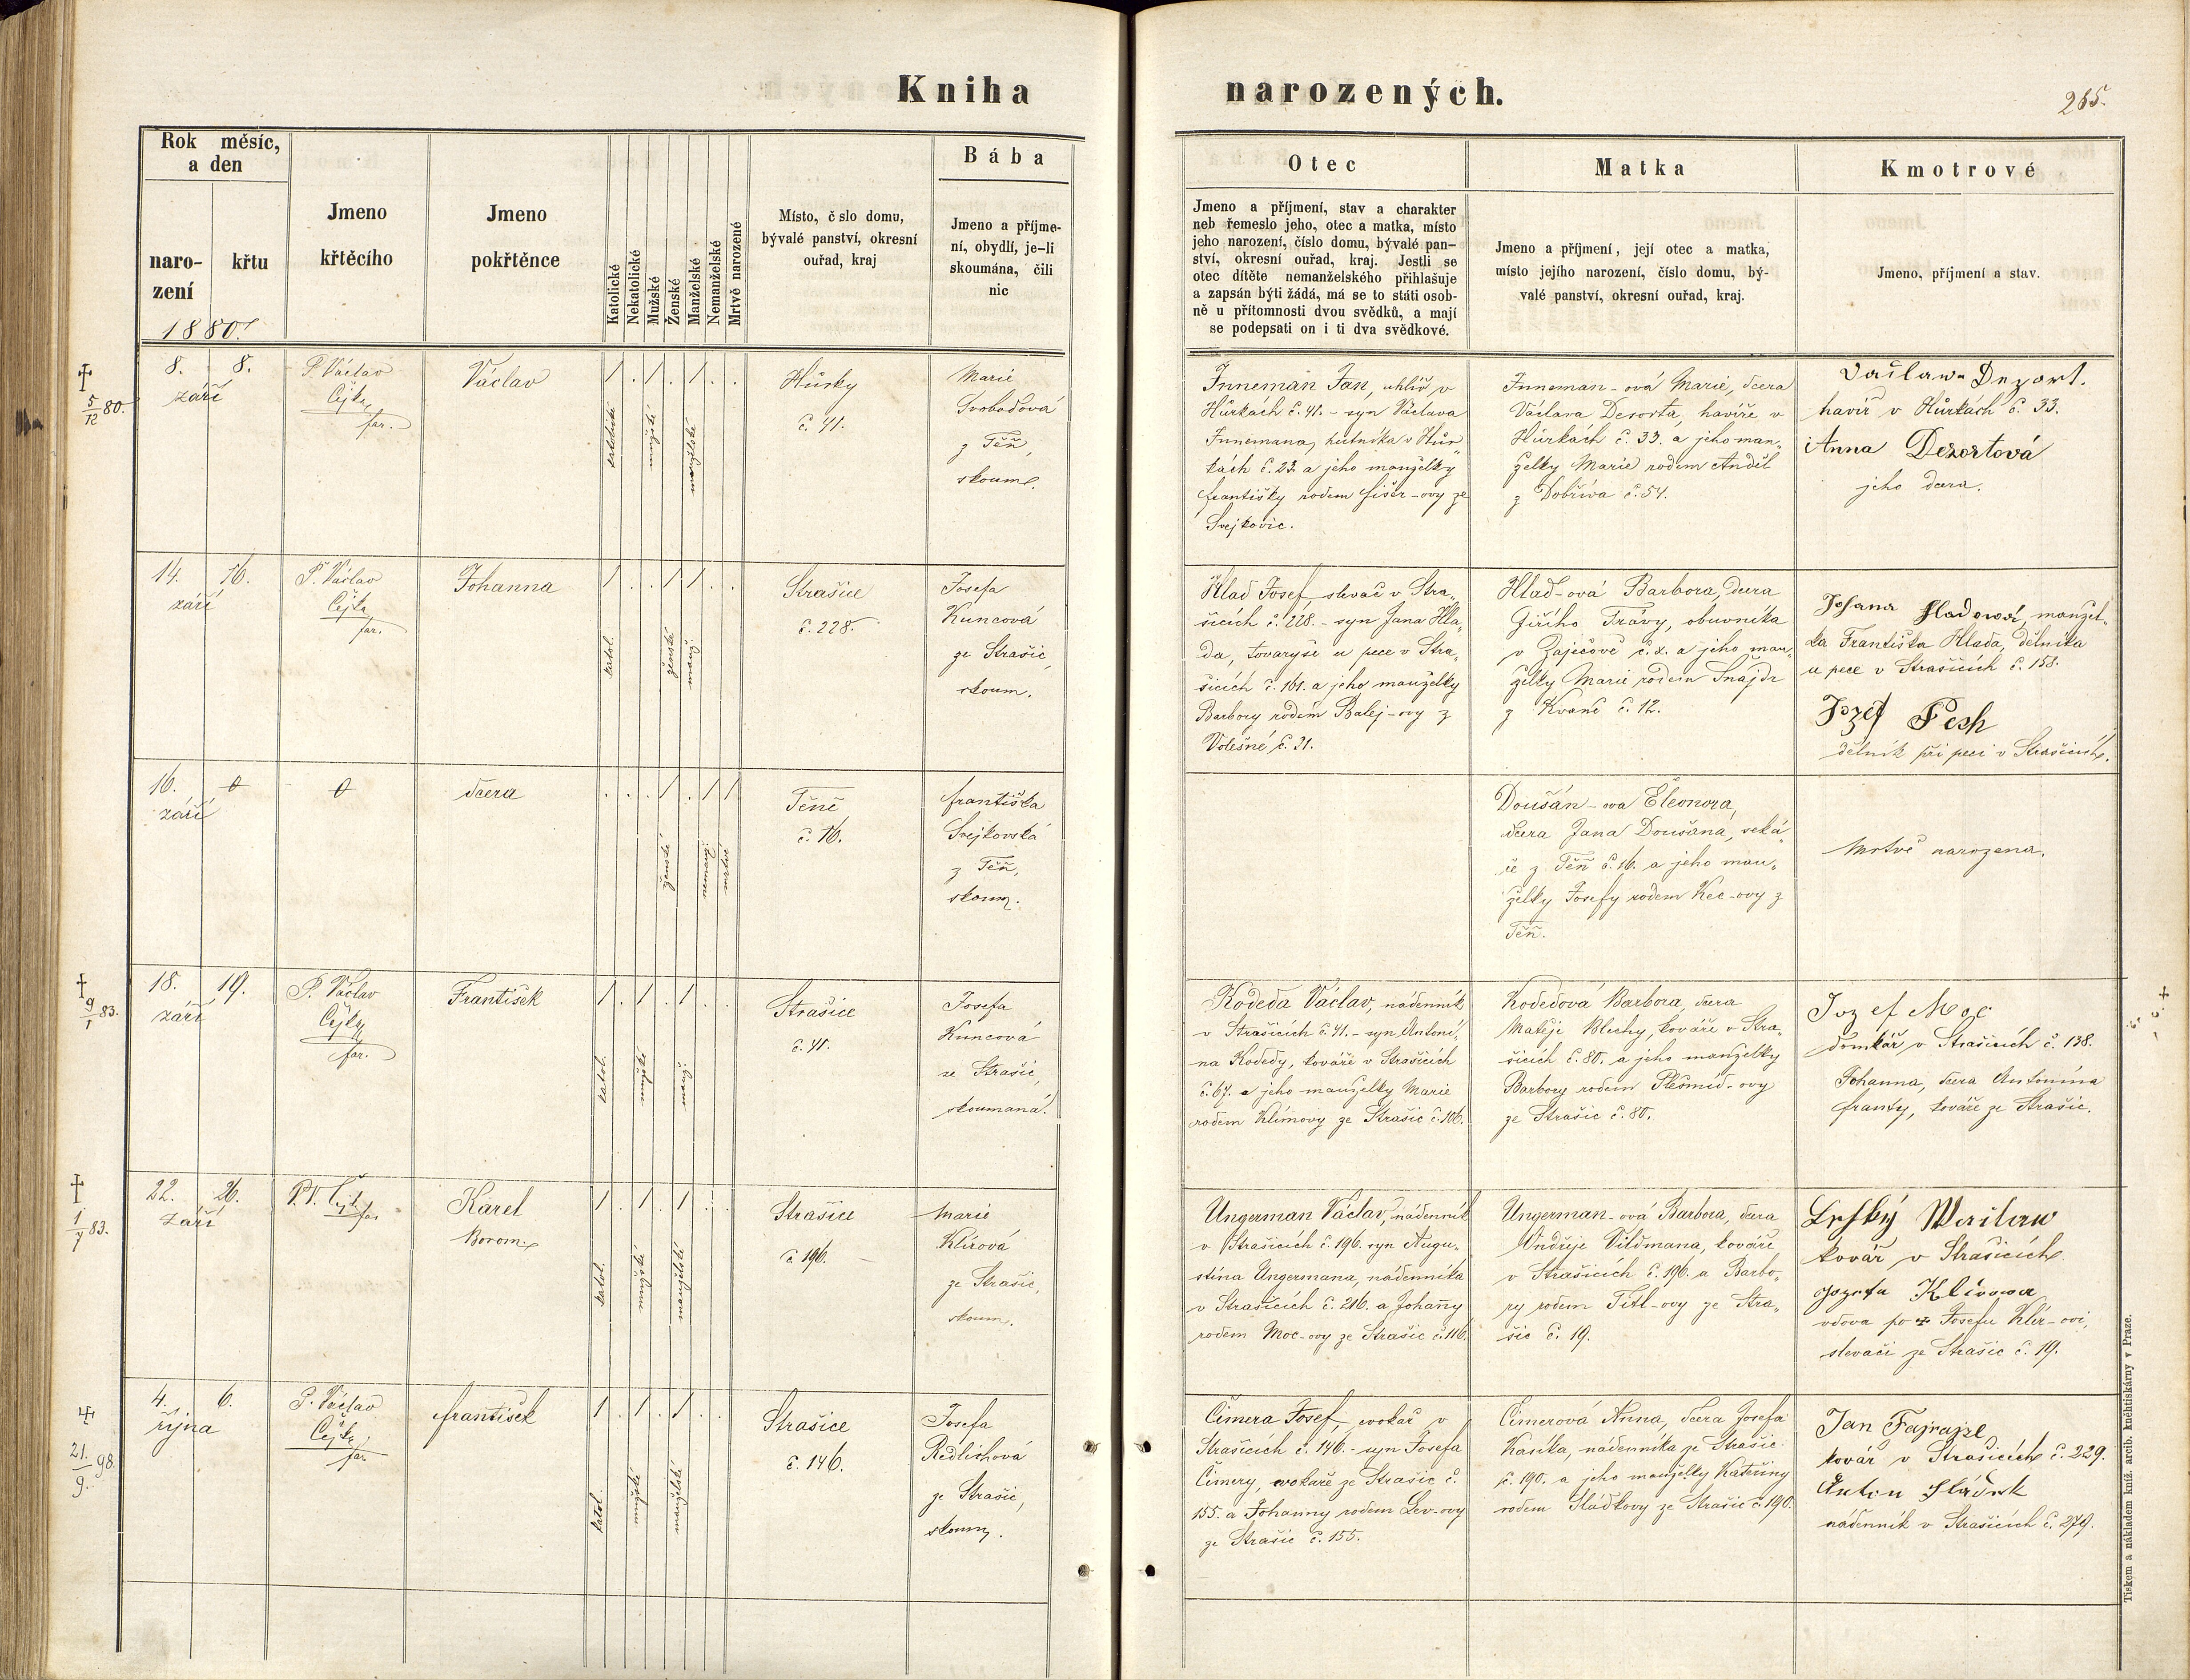 Kniha narozených.
265.
Rok měsíc,
a den
naro-
zení
křtu
1880.
Jmeno
křtěcího
Jmeno
pokřtěnce
Katolické
Nekatolické
Mužské
Ženské
Manželské
Nemanželské
Mrtvě narozené
Místo, č slo domu,
bývalé panství, okresní
ouřad, kraj
Bába
Jmeno a příjme-
ní, obydlí, je-li
skoumána, čili
nic
Otec
Jmeno a příjmení, stav a charakter
neb řemeslo jeho, otec a matka, místo
jeho narození, číslo domu, bývalé pan-
ství, okresní ouřad, kraj. Jestli se
otec dítěte nemanželského přihlašuje
a zapsán býti žádá, má se to státi osob-
ně u přítomnosti dvou svědků, a mají
se podepsati on i ti dva svědkové.
Matka
Jmeno a příjmení, její otec a matka,
místo jejího narození, číslo domu, bý-
valé panství, okresní ouřad, kraj.
Kmotrové
Jmeno, příjmení a stav.
† 5/12 80.
8. 8.
září
P. Václav
Čejka,
far.
Václav
1 . 1 . 1 . .
katolické
mužské
manželské
Hůrky
č. 41.
Marie
Svobodová
z Těň,
skoum.
Inneman Jan, uhlíř v
Hůrkách č. 41. - syn Václava
Innemana, hutníka v Hůr„
kách č. 23. a jeho manželky
Františky rodem Fišer-ovy ze
Svejkovic.
Inneman-ová Marie, dcera
Václava Desorta, havíře v
Hůrkách č. 33. a jeho man„
želky Marie rodem Anděl
z Dobříva č. 54.
Vaclaw Dezort.
havíř v Hůrkách č. 33.
Anna Dezortová
jeho dcera.
14. 16.
září
P. Václav
Čejka
far.
Johanna
1 . . 1 1 . .
katol.
ženské
manž.
Strašice
č. 228.
Josefa
Kuncová
ze Strašic,
skoum.
Hlad Josef slevač v Stra„
šicích č. 228. - syn Jana Hla„
da, tovaryše u pece v Stra„
šicích č. 161. a jeho manželky
Barbory rodem Balej-ovy z
Volešné č. 31.
Hlad-ová Barbora, dcera
Jiřího Trávy, obuvníka
v Zaječově č. 2. a jeho man„
želky Marie rodem Šnajdr
z Kvaně č. 12.
Johana Hladowá, manžel„
ka Františka Hlada, dělníka
u pece v Strašicích č. 158.
Jozef Pesh
dělník při peci v Strašicích.
16. 0
září
0
dcera
. . . 1 . 1 1
ženské
nemanž.
mrtvé
Těně
č. 16.
Františka
Svejkovská
z Těň,
skoum.
Doušán-ova Eleonora,
dcera Jana Doušana, seká„
če z Těň č. 16. a jeho man„
želky Josefy rodem Kec-ovy z
Těň.
Mrtvě narozena.
† 9/1 83.
18. 19.
září
P. Václav
Čejka
far.
František
1 . 1 . 1 . .
katol.
mužské
manž.
Strašice
č. 41.
Josefa
Kuncová
ze Strašic,
skoumaná.
Kodeda Václav, nádenník
v Strašicích č. 41. - syn Antoní„
na Kodedy, kováře v Strašicích
č. 67. a jeho manželky Marie
rodem Klímovy ze Strašic č. 106.
Kodedová Barbora, dcera
Matěje Blechy, kováře v Stra„
šicích č. 80. a jeho manželky
Barbory rodem Plesmíd-ovy
ze Strašic č. 80.
Jozef Moc
domkář v Strašicích č. 138.
Johanna, dcera Antonína
Franty, kováře ze Strašic.
† 1/7 83.
22. 26.
září
P. V. Čejka
far.
Karel
Borom.
1 . 1 . 1 . .
katol.
mužské
manželské
Strašice
č. 196.
Marie
Klírová
ze Strašic,
skoum.
Ungerman Václav, nádenník
v Strašicích č. 196. syn Augu„
stina Ungermana, nádenníka
v Strašicích č. 216. a Johany
rodem Moc-ovy ze Strašic č. 116.
Ungerman-ová Barbora, dcera
Ondřeje Vildmana, kováře
v Strašicích č. 196. a Barbo„
ry rodem Titl-ovy ze Stra„
šic č. 19.
kovář v Strašicích
Klírowa
vdova po † Josefu Klír-ovi,
slevači ze Strašic č. 19.
† 21./9. 98.
4. 6.
října
P. Václav
Čejka,
far.
František
1 . 1 . 1 . .
katol.
mužské
manželské
Strašice
č. 146.
Josefa
Redlichová
ze Strašic,
skoum.
Čimera Josef, cvokař v
Strašicích č. 146. - syn Josefa
Čimery, cvokaře ze Strašic č.
155. a Johanny rodem Lev-ovy
ze Strašic č. 155.
Čimerová Anna, dcera Josefa
Kasíka, nádenníka ze Strašic
č. 190. a jeho manželky Kateřiny
rodem Sládkovy ze Strašic č. 190.
Jan Fajrajzl
kovář v Strašicích č. 229.
Anton Sládek
nádenník v Strašicích č. 279.
Tiskem a nákladem kníž. arcib. kněhtiskárny v Praze.